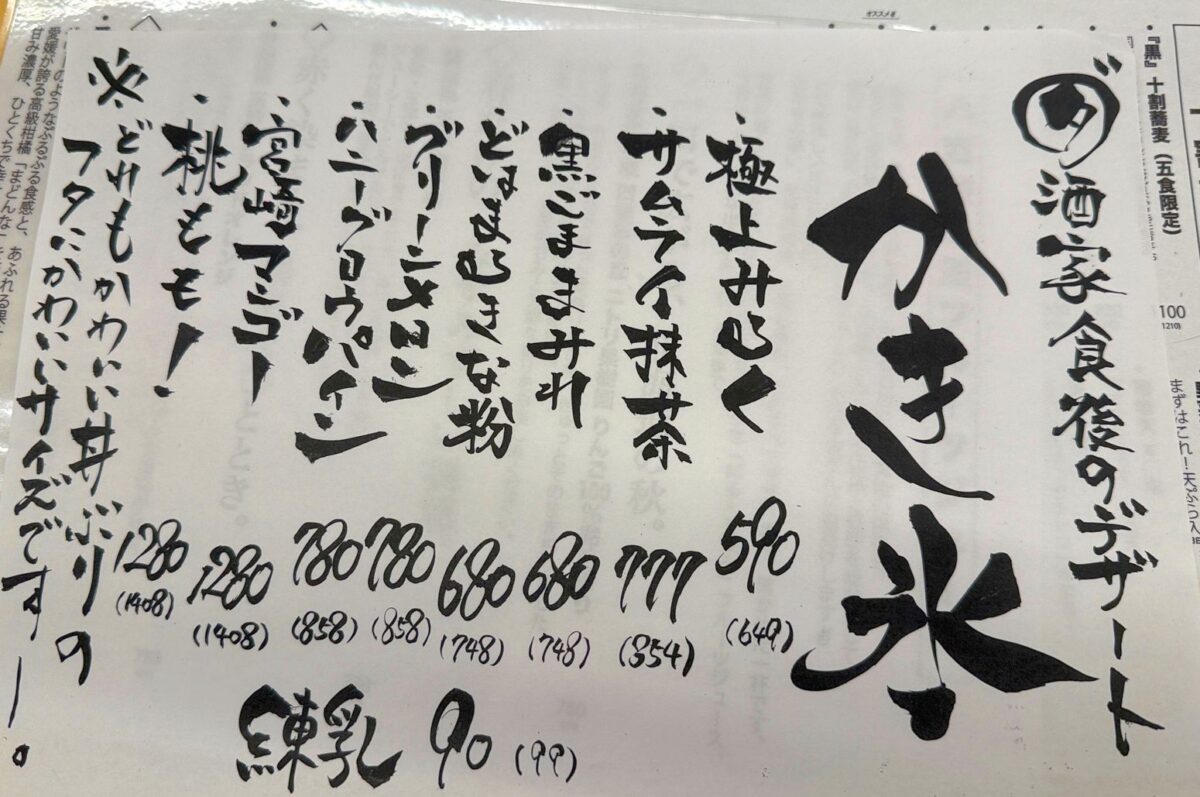 酒家食後のデザート
かき氷
・極上みぞれ 590 (649)
・サムライ抹茶 777 (854)
・黒ごままみれ 680 (748)
・どはまりきな粉 680 (748)
・グリーンメロン 780 (858)
・ハニーグロウパイン 780 (858)
・宮崎マンゴー 1280 (1408)
・桃もも! 1280 (1408)
練乳 90 (99)
※どれもかわいい丼ぶりの
フタにかわいいサイズですー。
オススメ
『黒』十割蕎麦(五食限定)
100
1210
まずはこれ!天ぷら
のようなぷるぷる食感と、あふれる果
愛媛が誇る高級柑橘「まどんな
甘み濃厚、ひとくちで